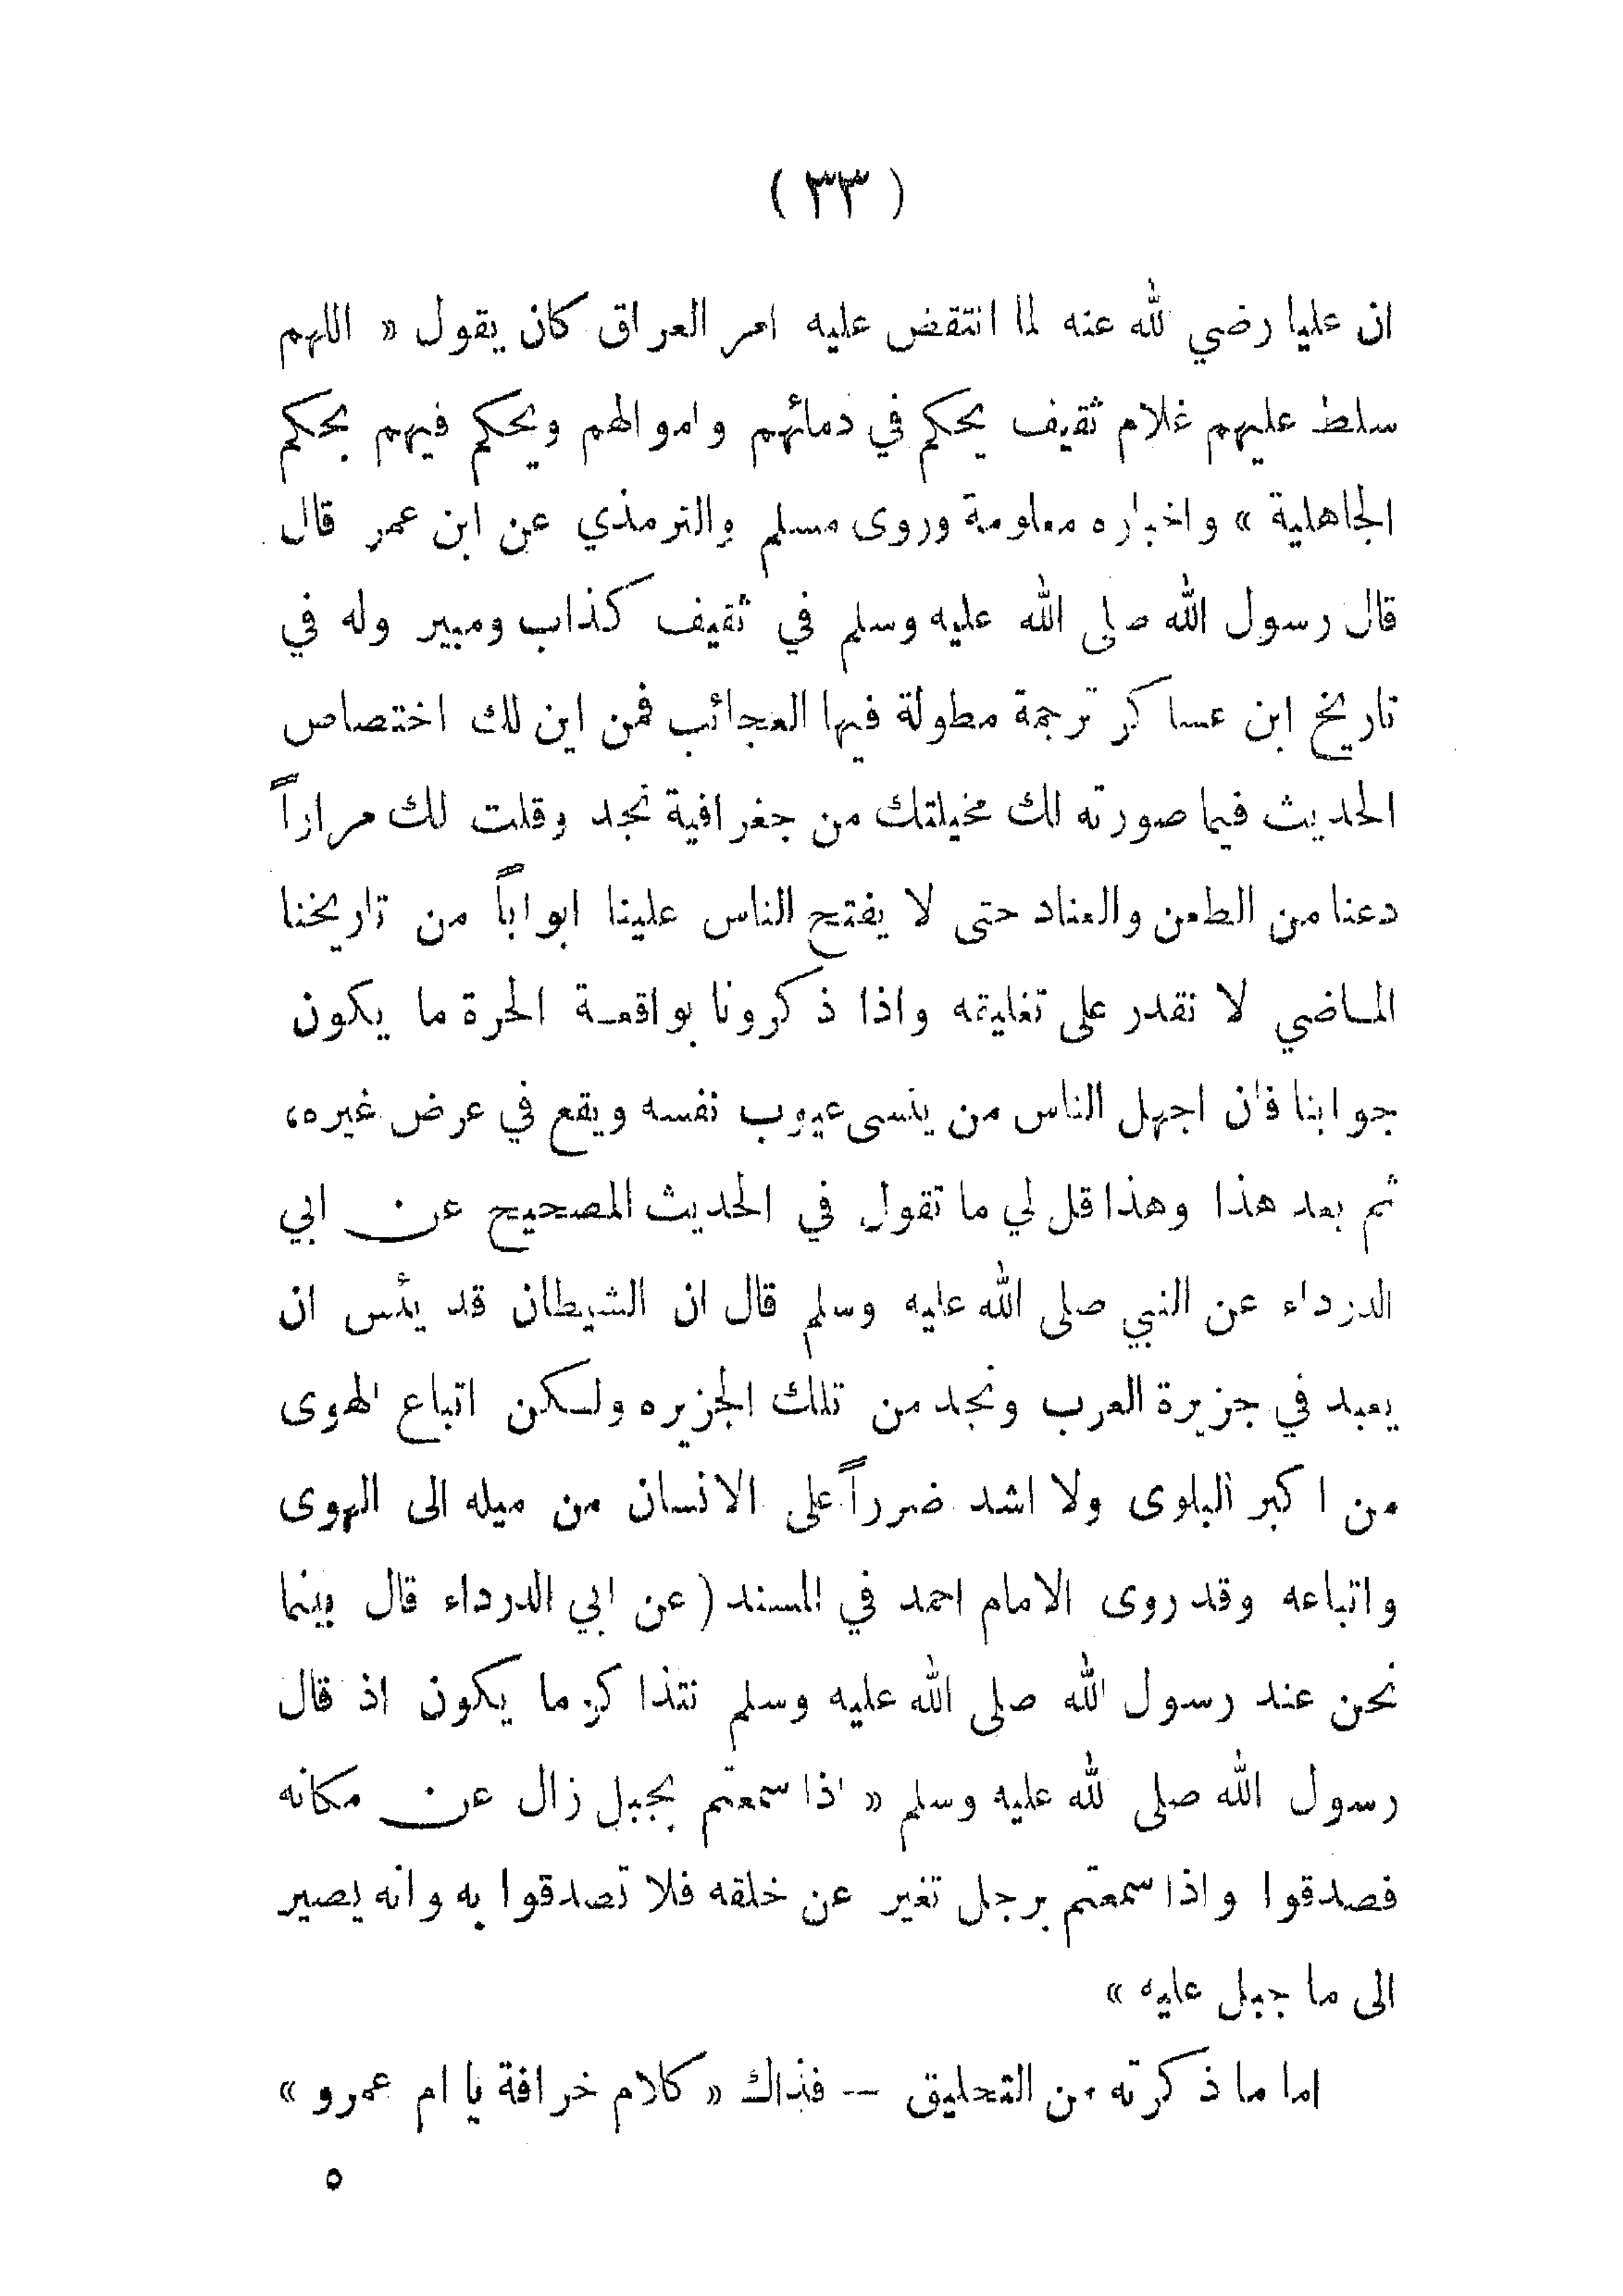 ( ٣٣ )
ان عليا رضي الله عنه لما انتقض عليه امر العراق كان يقول « اللهم
سلط عليهم غلام ثقيف يحكم في دمائهم واموالهم ويحكم فيهم بحكم
الجاهلية » واخباره معلومة وروى مسلم والترمذي عن ابن عمر قال
قال رسول الله صلى الله عليه وسلم في ثقيف كذاب ومبير وله في
تاريخ ابن عساكر ترجمة مطولة فيها العجائب فمن اين لك اختصاص
الحديث فيما صورته لك مخيلتك من جغرافية نجد وقلت لك مراراً
دعنا من الطعن والعناد حتى لا يفتح الناس علينا ابواباً من تاريخنا
الماضي لا نقدر على تغليقه واذا ذكرونا بواقعة الحرة ما يكون
جوابنا فان اجهل الناس من ينسى عيوب نفسه ويقع في عرض غيره،
ثم بعد هذا وهذا قل لي ما تقول في الحديث الصحيح عن ابي
الدرداء عن النبي صلى الله عليه وسلم قال ان الشيطان قد يئس ان
يعبد في جزيرة العرب ونجد من تلك الجزيره ولكن اتباع الهوى
من اكبر البلوى ولا اشد ضرراً على الانسان من ميله الى الهوى
واتباعه وقد روى الامام احمد في المسند ( عن ابي الدرداء قال بينما
نحن عند رسول الله صلى الله عليه وسلم نتذاكر ما يكون اذ قال
رسول الله صلى الله عليه وسلم « اذا سمعتم بجبل زال عن مكانه
فصدقوا واذا سمعتم برجل تغير عن خلقه فلا تصدقوا به وانه يصير
الى ما جبل عليه »
اما ما ذكرته من التحليق — فذاك « كلام خرافة يا ام عمرو »
٥